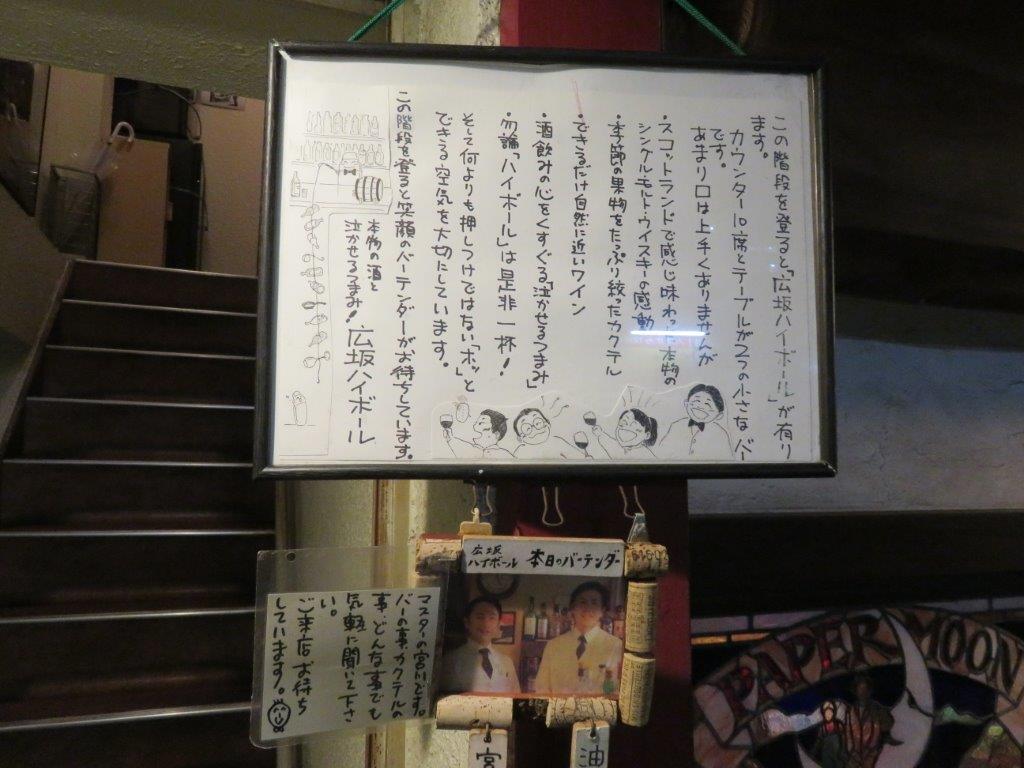 この階段を登ると、「広坂ハイボール」が有り
ます。
カウンター10席とテーブルが2つの小さなバー
です。
あまり口は上手くありませんが
・スコットランドで感じ味わった本物の
シングル・モルト・ウイスキーの感動
・季節の果物をたっぷり絞ったカクテル
・できるだけ自然に近いワイン
・酒飲みの心をくすぐる「泣かせるつまみ」
・勿論「ハイボール」は是非一杯!
そして何よりも押しつけではない「ホッ」と
できる空気を大切にしています。
この階段を登ると笑顔のバーテンダーがお待ちしています。
本物の酒と
泣かせるつまみ!
広坂ハイボール
広坂
ハイボール
本日のバーテンダー
マスターの宮いです。
バーの事、カクテルの
事、どんな事でも
気軽に聞いて下さ
い。
ご来店お待ち
しています。
宮
油
PAPER MOON